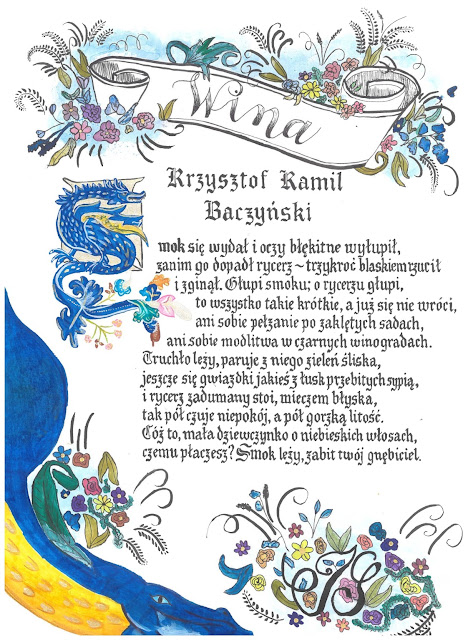 Wina
Krzysztof Kamil
Baczyński
Smok się wydał i oczy błękitne wyłupił,
zanim go dopadł rycerz ~ trzykroć blaskiem rzucił
i zginął. Głupi smoku; o rycerzu głupi,
to wszystko takie krótkie, a już się nie wróci,
ani sobie pełzanie po zaklętych sadach,
ani sobie modlitwa w czarnych winogradach.
Truchło leży, paruje z niego zieleń śliska,
jeszcze się gwiazdki jakieś z łusk przebitych sypią,
i rycerz zadumany stoi, mieczem błyska,
tak pół czuje niepokój, a pół gorzką litość.
Cóż to, mała dziewczynko o niebieskich włosach,
czemu płaczesz? Smok leży, zabit twój gnębiciel.